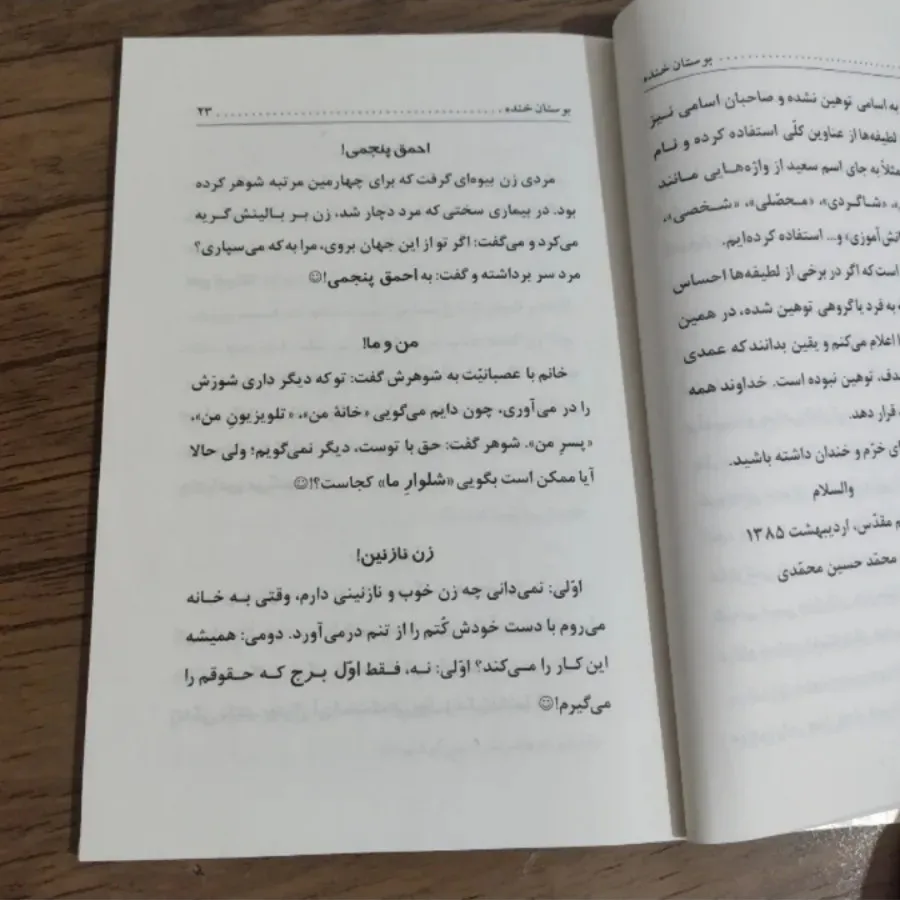 بوستان خنده
به اسامی توهین نشده و صاحبان اسامی نیز
لطیفه‌ها از عناوین کلّی استفاده کرده و نام
مثلاً به جای اسم سعید از واژه‌هایی مانند
«شاگردی»، «محصّلی»، «شخصی»،
آموزی» و... استفاده کرده‌ایم.
است که اگر در برخی از لطیفه‌ها احساس
به فرد یا گروهی توهین شده، در همین
اعلام می‌کنم و یقین بدانند که عمدی
توهین نبوده است. خداوند همه
قرار دهد.
خرّم و خندان داشته باشید.
والسلام
مقدّس، اردیبهشت ۱۳۸۵
محمّد حسین محمّدی
بوستان خنده ۲۳
احمق پنجمی!
مردی زن بیوه‌ای گرفت که برای چهارمین مرتبه شوهر کرده
بود. در بیماری سختی که مرد دچار شد، زن بر بالینش گریه
می‌کرد و می‌گفت: اگر تو از این جهان بروی، مرا به که می‌سپاری؟
مرد سر برداشته و گفت: به احمق پنجمی!☺
من و ما!
خانم با عصبانیّت به شوهرش گفت: تو که دیگر داری شورَش
را در می‌آوری، چون دایم می‌گویی «خانهٔ من»، «تلویزیونِ من»،
«پسرِ من». شوهر گفت: حق با توست، دیگر نمی‌گویم؛ ولی حالا
آیا ممکن است بگویی «شلوارِ ما» کجاست؟!☺
زن نازنین!
اوّلی: نمی‌دانی چه زن خوب و نازنینی دارم، وقتی به خانه
می‌روم با دست خودش کُتم را از تنم درمی‌آورد. دومی: همیشه
این کار را می‌کند؟ اوّلی: نه، فقط اوّل برج که حقوقم را
می‌گیرم!☺